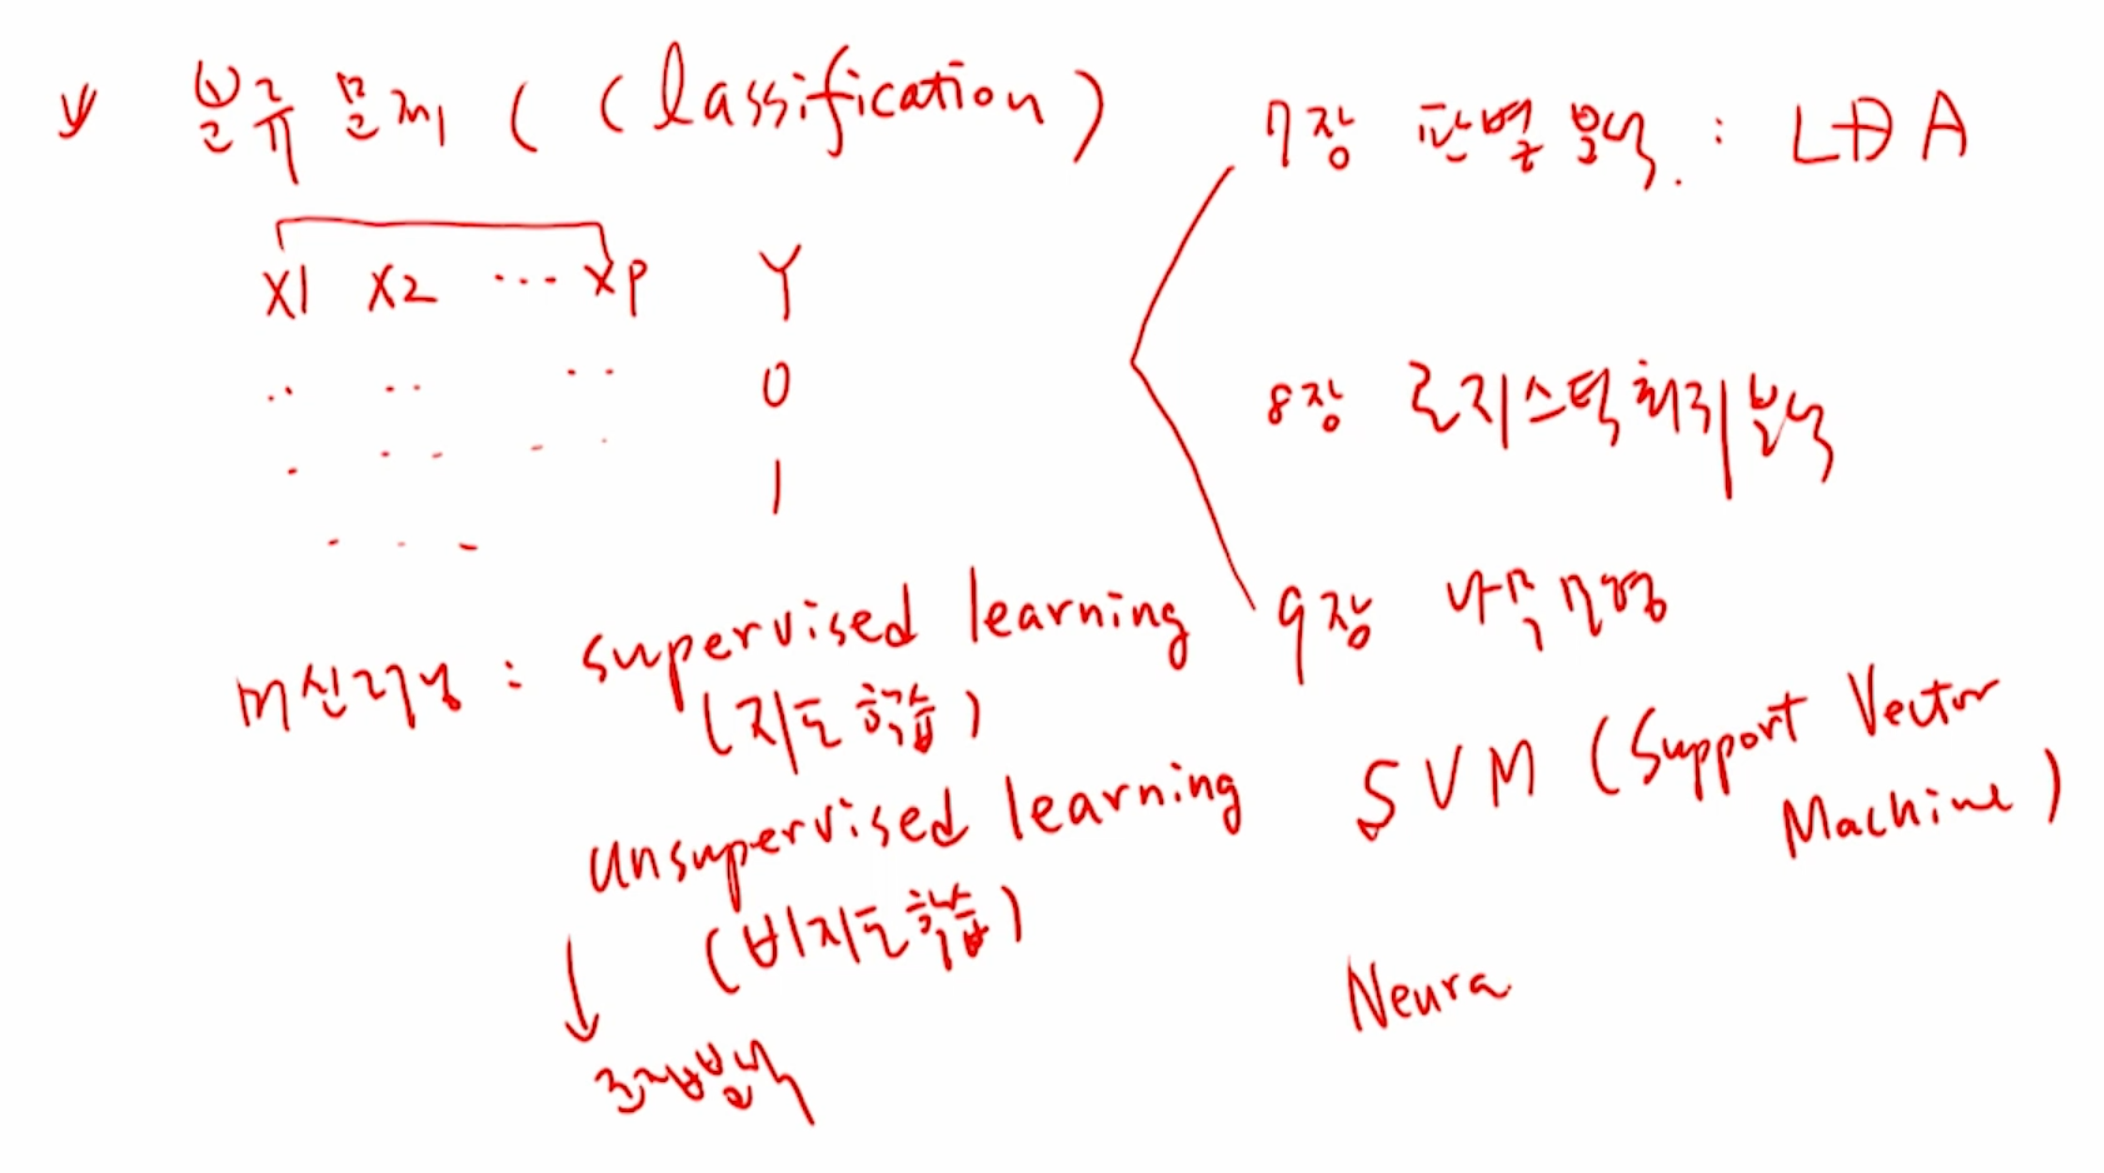 분류 문제 (Classification)
X1 X2 ... Xp Y
0
1
머신러닝 : supervised learning
(지도 학습)
unsupervised learning
(비지도 학습)
↓
군집분석
7장 판별분석. : LDA
8장 로지스틱 회귀분석
9장 나무모형
SVM (Support Vector
Machine)
Neura